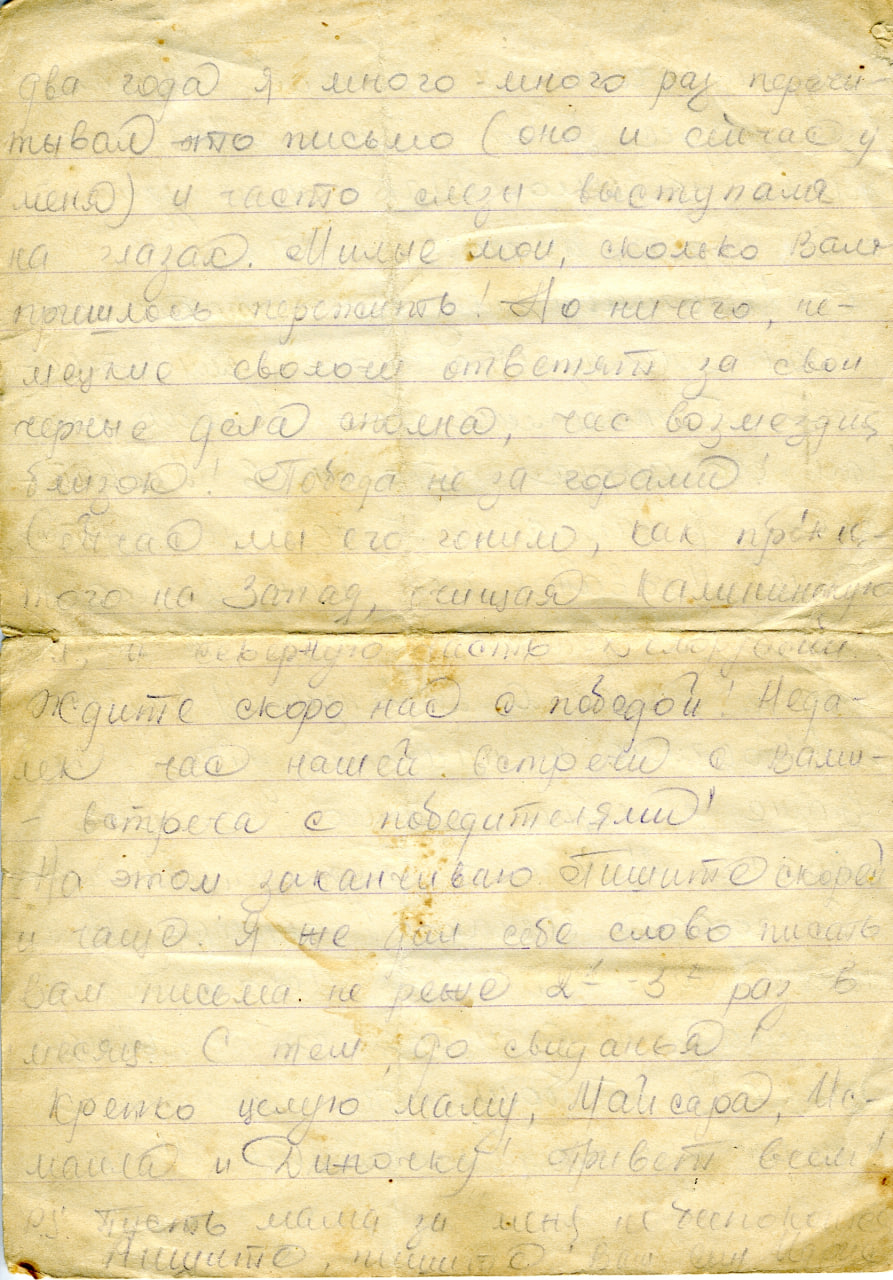 два года я много-много раз перечи-
тывал это письмо (оно и сейчас у
меня) и часто слезы выступали
на глазах. Милые мои, сколько Вам
пришлось пережить! Но ничего, не-
мецкие сволочи ответят за свои
черные дела сполна, час возмездия
близок! Победа не за горами!
Сейчас мы его гоним, как прокля-
того на Запад, очищая Калининскую
и северную часть Белоруссии.
Ждите скоро нас с победой! Неда-
лек час нашей встречи с Вами-
- встреча с победителями!
На этом заканчиваю. Пишите скорей
и чаще. Я же дал себе слово писать
Вам письма не реже 2х -3х раз в
месяц. С тем, до свиданья!
Крепко целую маму, Майсара, Ис-
маила и Диночку! Привет всем!
P.S. Пусть мама за меня не
Пишите, пишите! Ваш сын